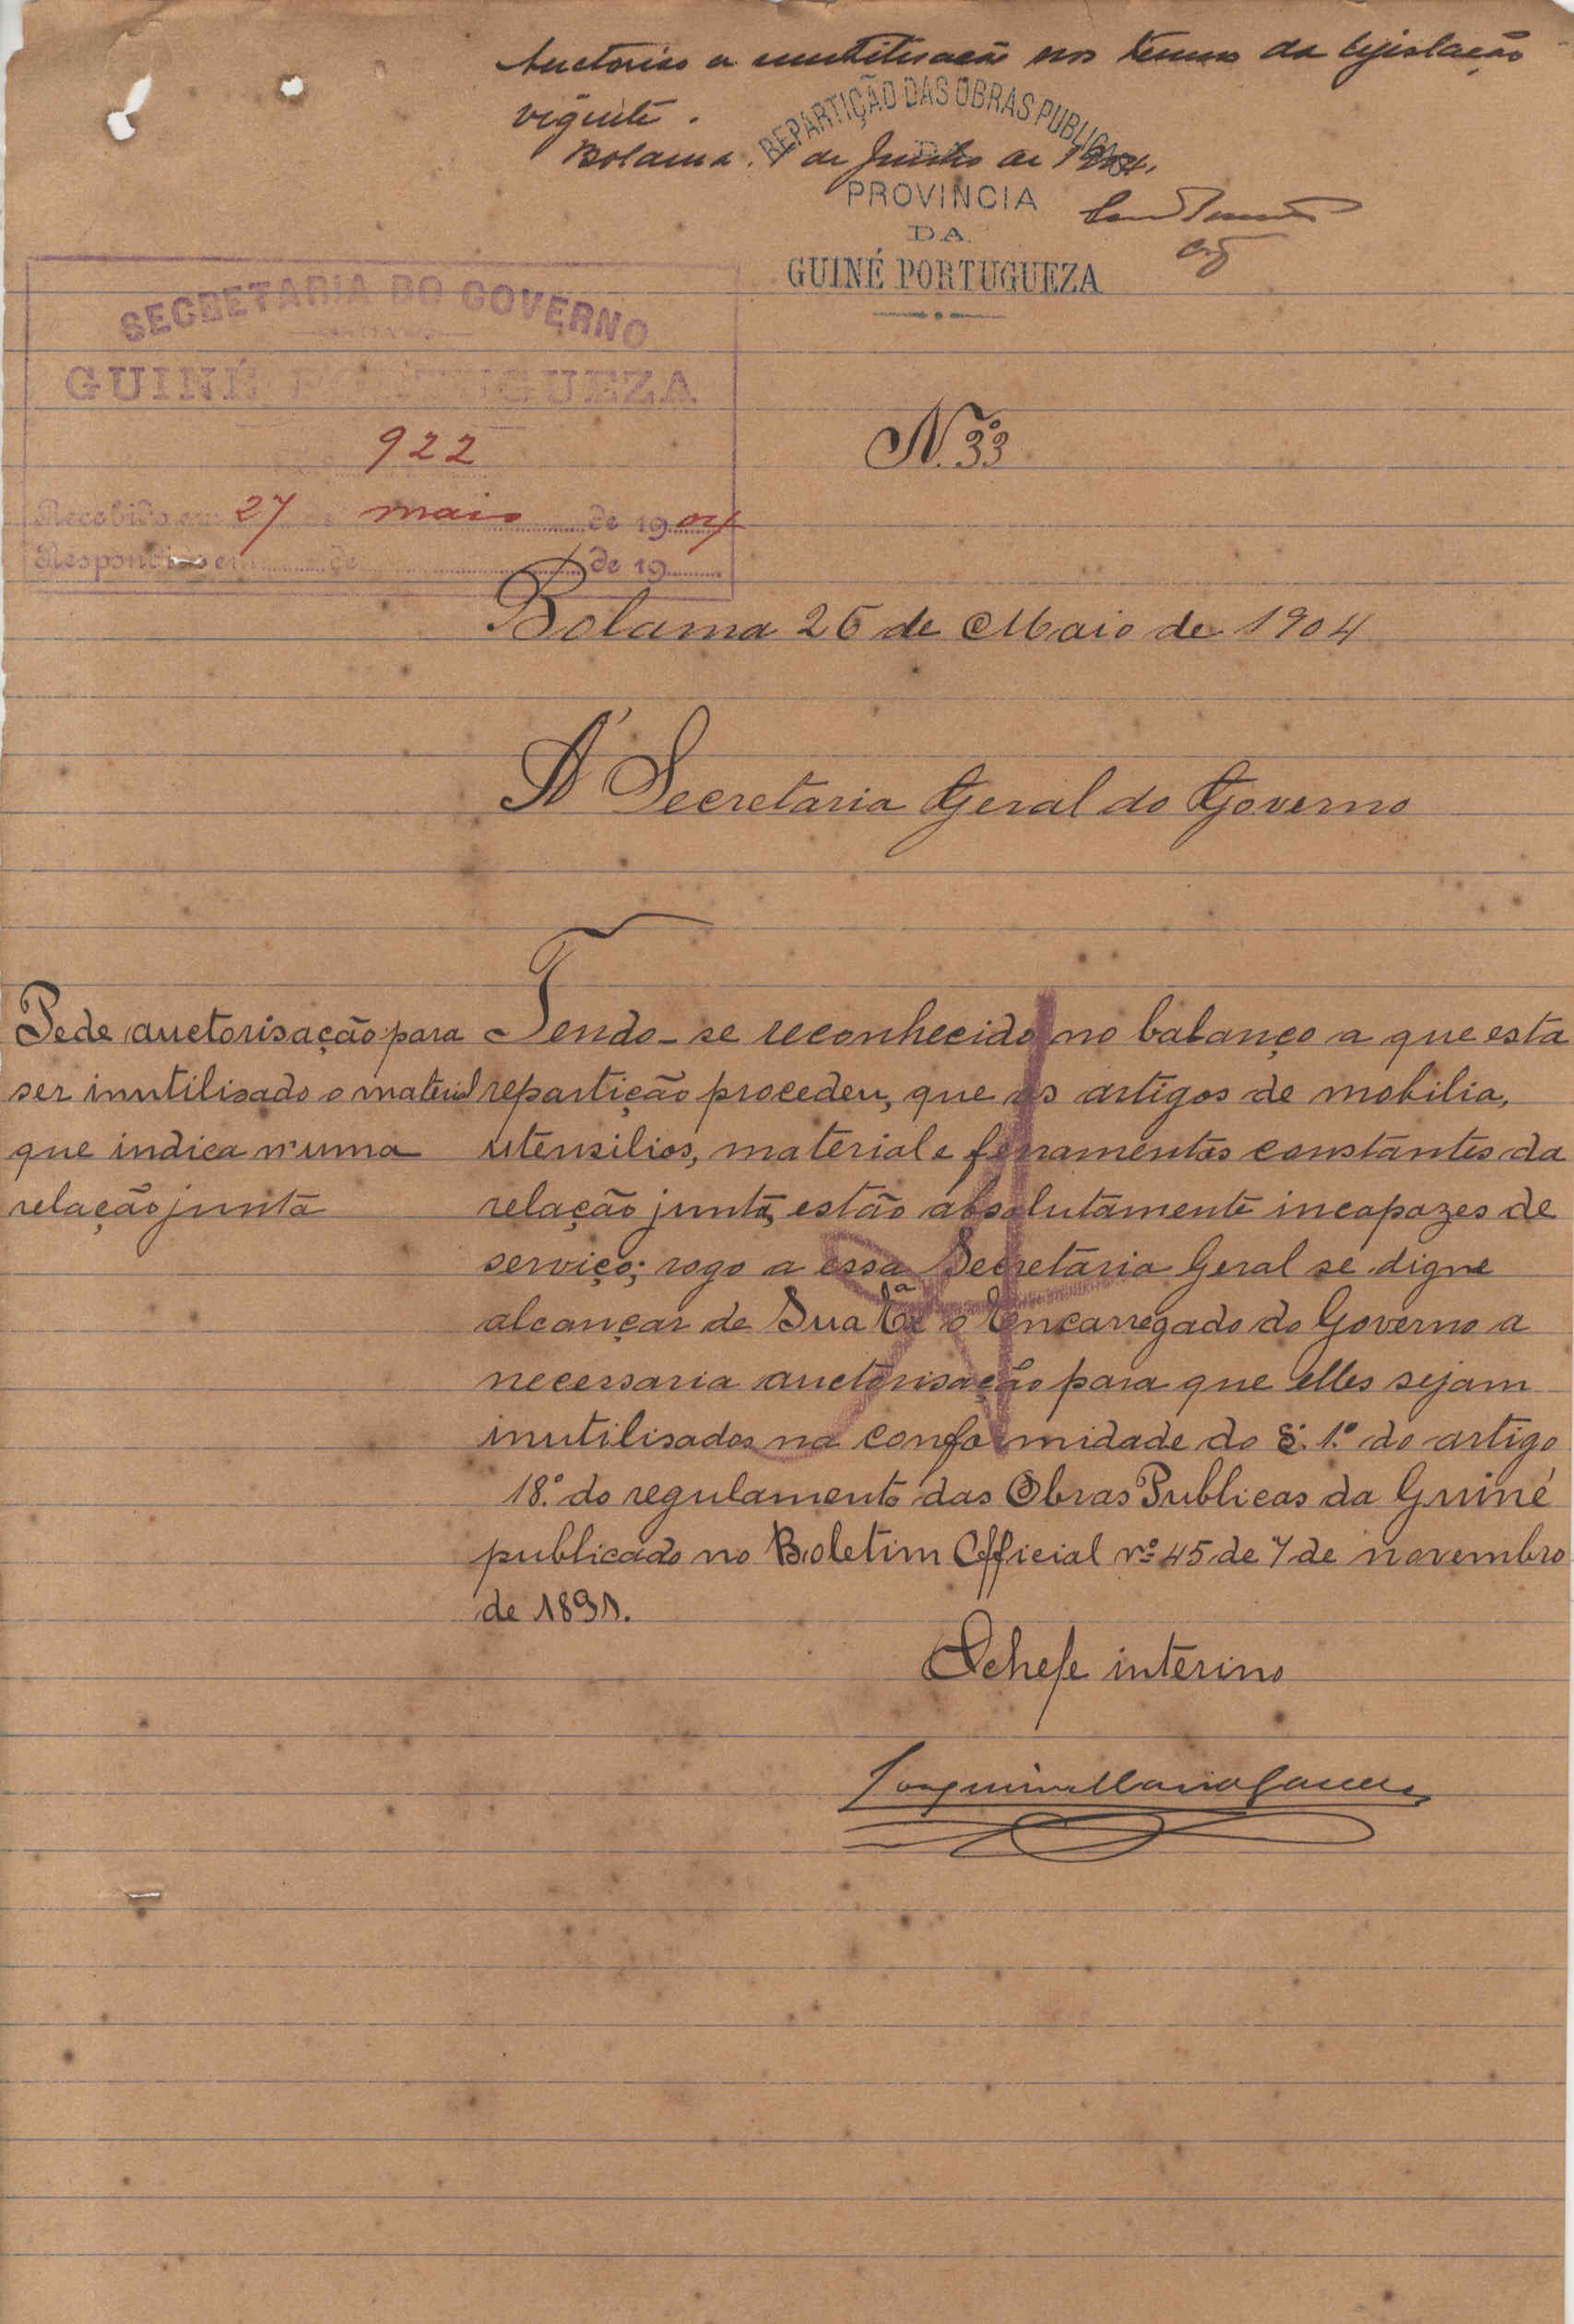 Auctoriso a inutilisação nos termos da legislação
vigente.
Bolama. 1 de Junho de 1904.
REPARTIÇÃO DAS OBRAS PUBLICAS
DA
PROVINCIA
DA
GUINÉ PORTUGUEZA
SECRETARIA DO GOVERNO
GUINÉ PORTUGUEZA
922
Recebido em 27 de maio de 1904
Respondido em de de 19
N.º 33
Bolama 26 de Maio de 1904
Á Secretaria Geral do Governo
Pede auctorisação para
ser inutilisado o material
que indica n'uma
relação junta
Tendo-se reconhecido no balanço a que esta
repartição procedeu, que os artigos de mobilia,
utensilios, material e ferramentas constantes da
relação junta, estão absolutamente incapazes de
serviço; rogo a essa Secretaria Geral se digne
alcançar de Sua Exª o Encarregado do Governo a
necessaria auctorisação para que elles sejam
inutilisados na conformidade do §. 1.º do artigo
18.º do regulamento das Obras Publicas da Guiné
publicado no Boletim Official nº 45 de 7 de novembro
de 1891.
O chefe interino